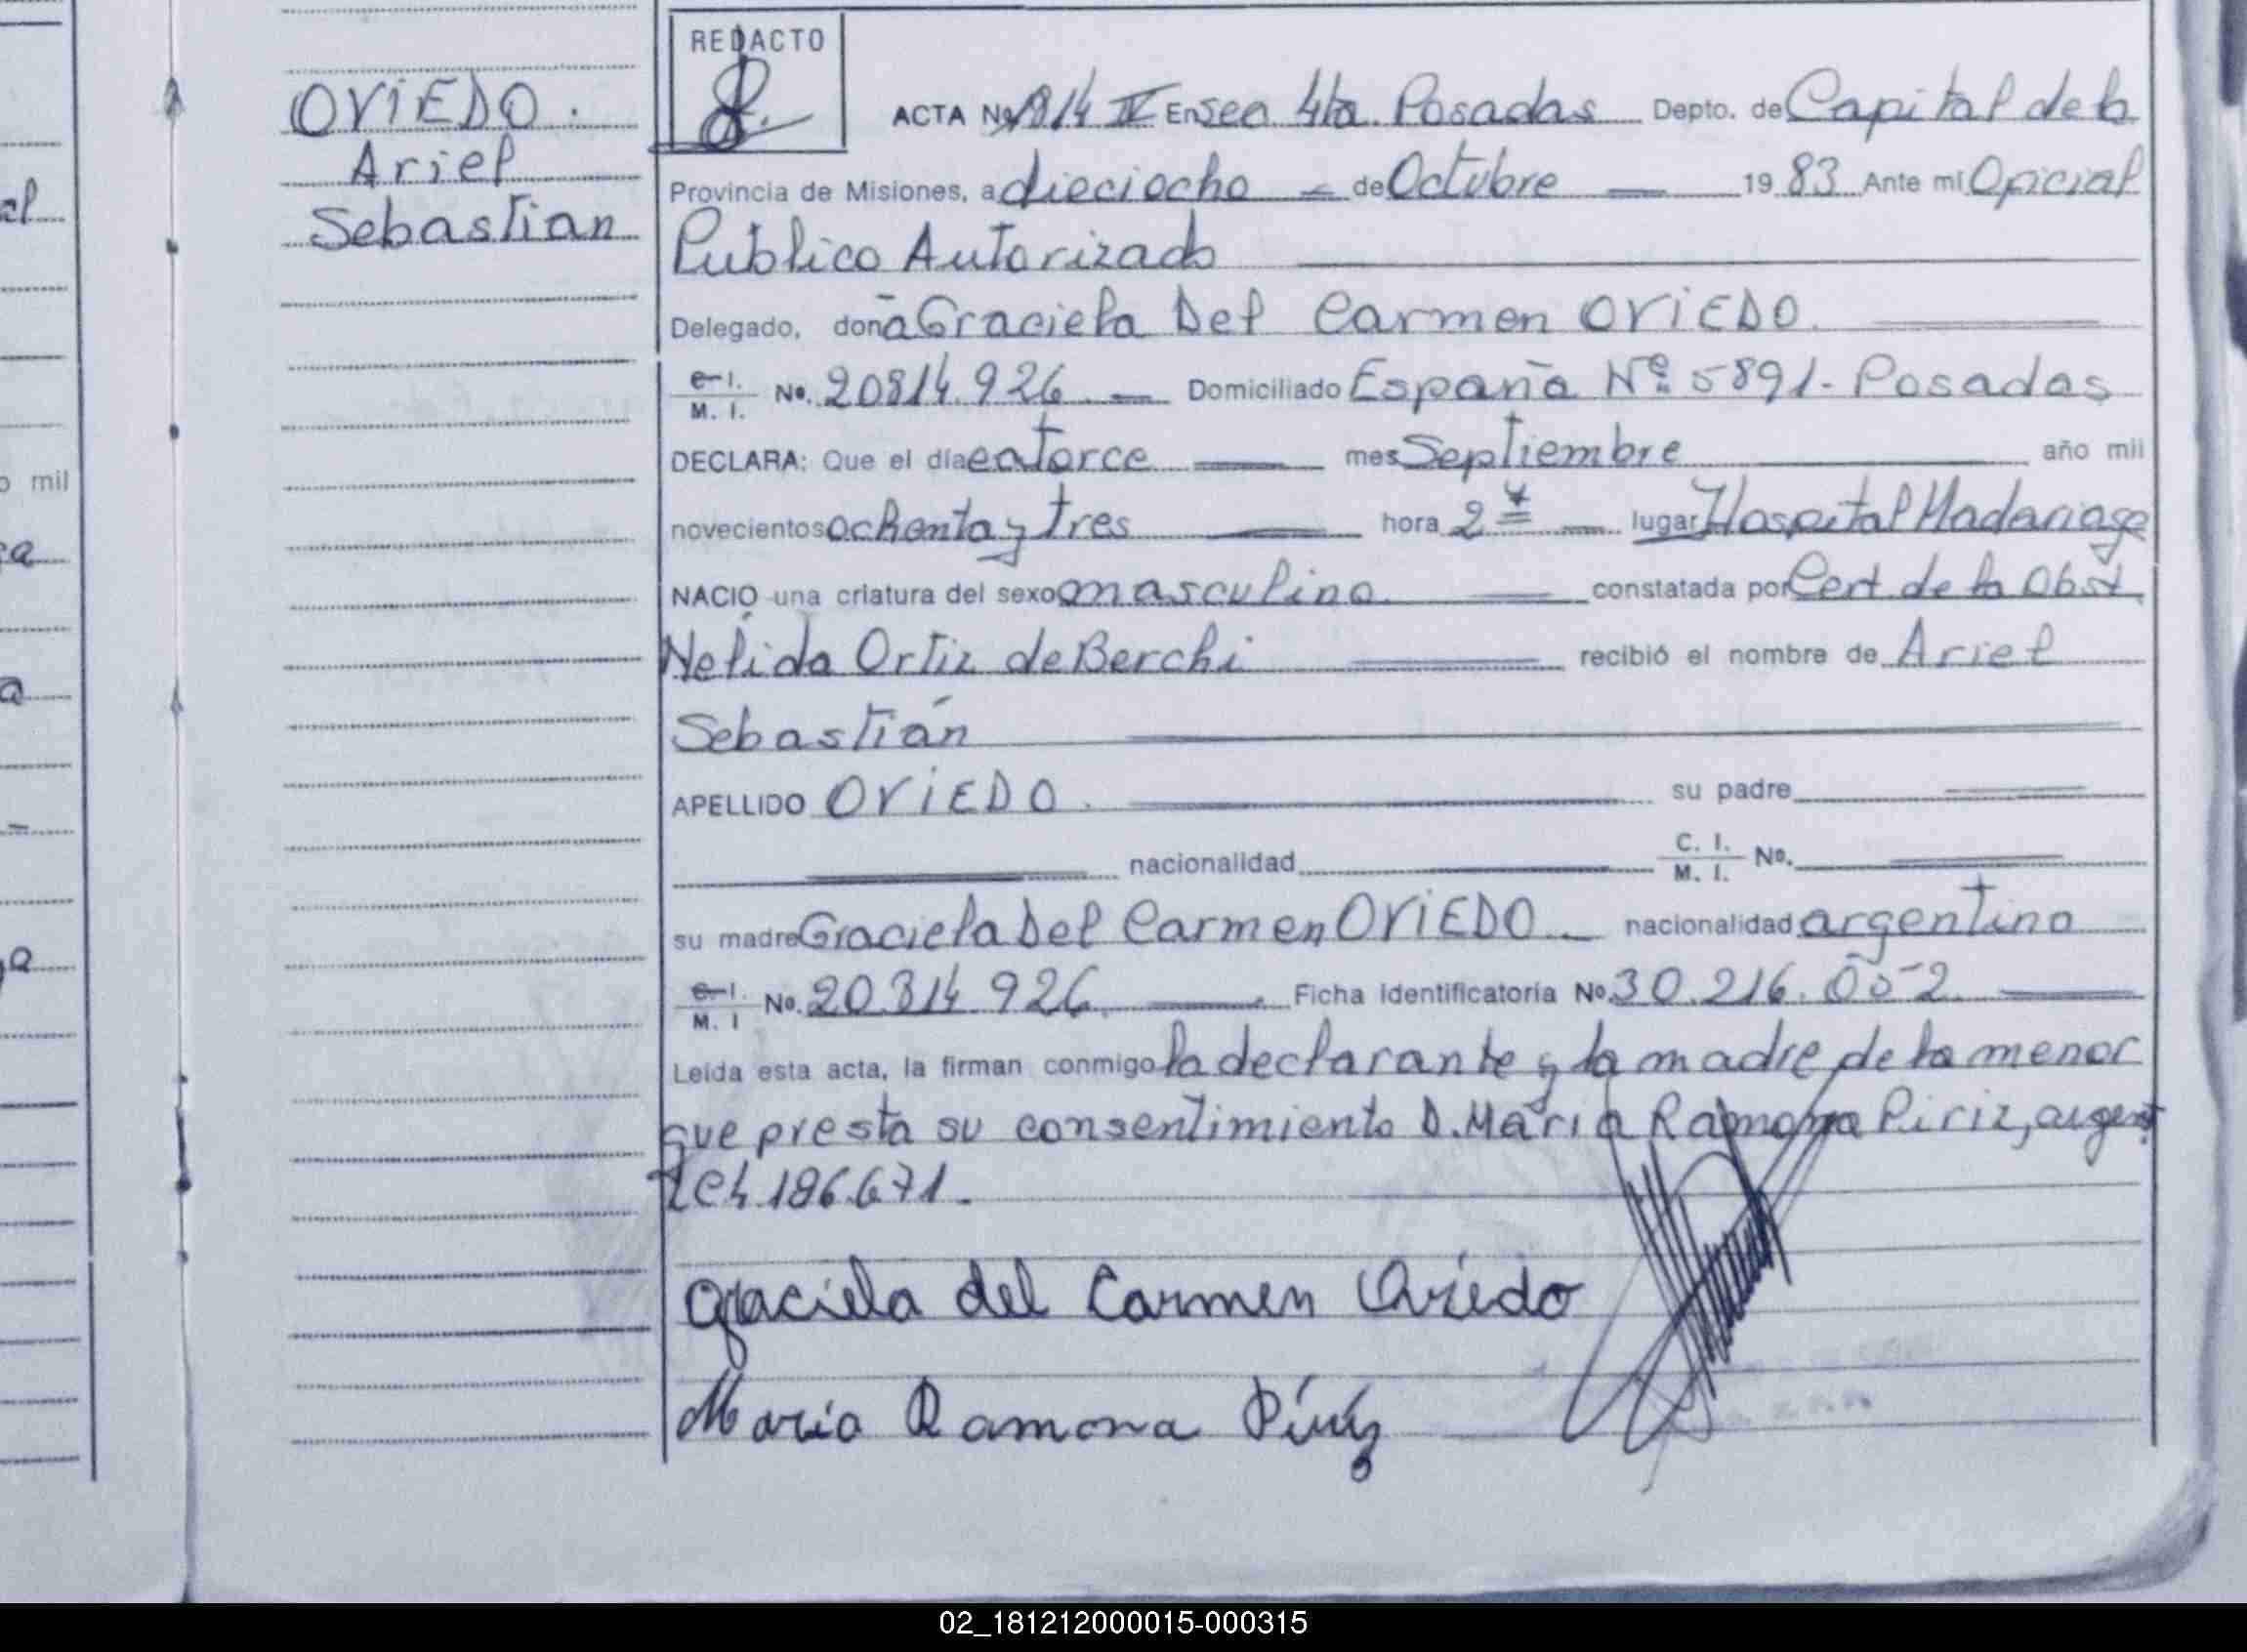 REDACTO
OVIEDO.
Ariel
Sebastian
ACTA No 1814 IV En Sec 4ta. Posadas Depto. de Capital de la
Provincia de Misiones, a dieciocho — de Octubre — 19 83 Ante mi Oficial
Publico Autorizado
Delegado, doña Graciela Del Carmen OVIEDO.
C. I. / M. I. No. 20814.926. — Domiciliado España Nº 5891- Posadas
DECLARA: Que el día catorce — mes Septiembre año mil
novecientos ochenta y tres — hora 2 — lugar Hospital Madariaga
NACIO una criatura del sexo masculino. — constatada por Cert. de la Obst.
Nelida Ortiz de Berchi — recibió el nombre de Ariel
Sebastián
APELLIDO OVIEDO. — su padre
nacionalidad C. I. / M. I. No.
su madre Graciela Del Carmen OVIEDO — nacionalidad argentina
C. I. / M. I No. 20.814 926. — Ficha identificatoria No. 30.216.052. —
Leída esta acta, la firman conmigo la declarante y la madre de la menor
que presta su consentimiento D. Maria Ramona Piriz, argent
LC 4.186.671.
Graciela del Carmen Oviedo
Maria Ramona Píriz
o mil
02_181212000015-000315